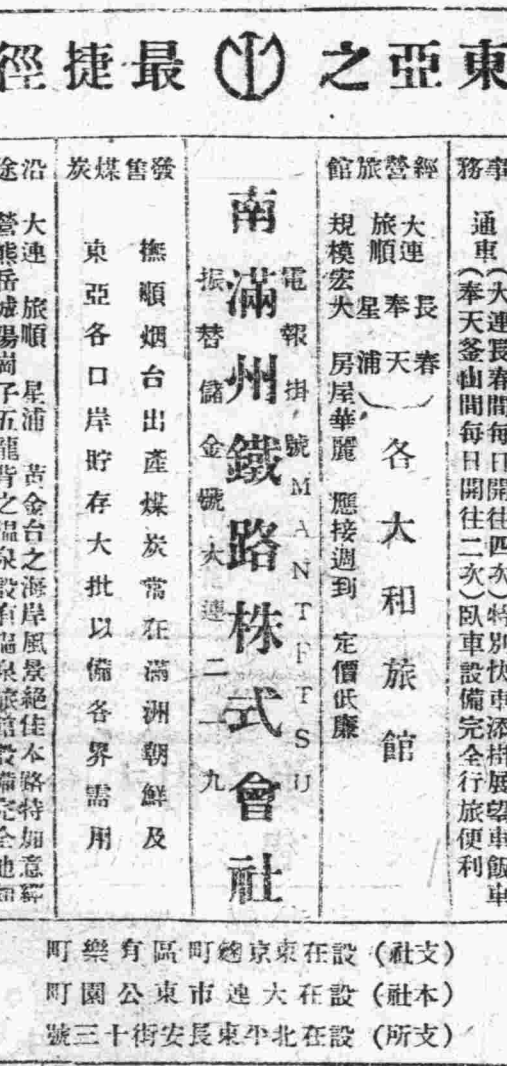 東亞之最捷徑
事務
通車(大連長春間每日開往四次)特別快車添掛展望車飯車
(奉天釜山間每日開往二次)臥車設備完全行旅便利
經營旅館
大連 旅順 星浦 奉天 長春 各大和旅館
規模宏大 房屋華麗 應接週到 定價低廉
電報掛號MANTETSU
南滿州鐵路株式會社
振替儲金號大連二一九
發售煤炭
撫順烟台出產煤炭常在滿洲朝鮮及
東亞各口岸貯存大批以備各界需用
沿途
大連 旅順 星浦 黃金台之海岸風景絕佳本路特加意經
營熊岳城湯崗子五龍背之溫泉設有溫泉旅館設備完全他如
(支社)設在東京麴町區有樂町
(本社)設在大連市東公園町
(支所)設在北平東長安街十三號